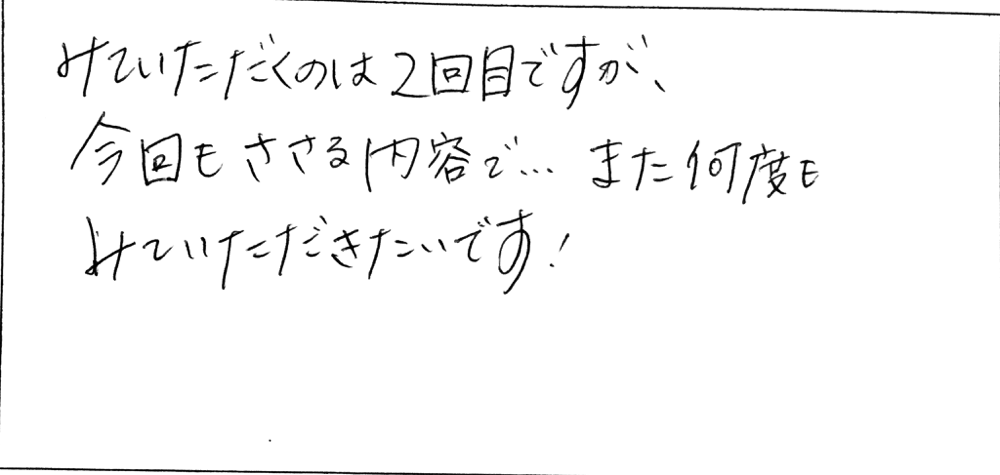 みていただくのは2回目ですが、
今回もささる内容で… また何度も
みていただきたいです!